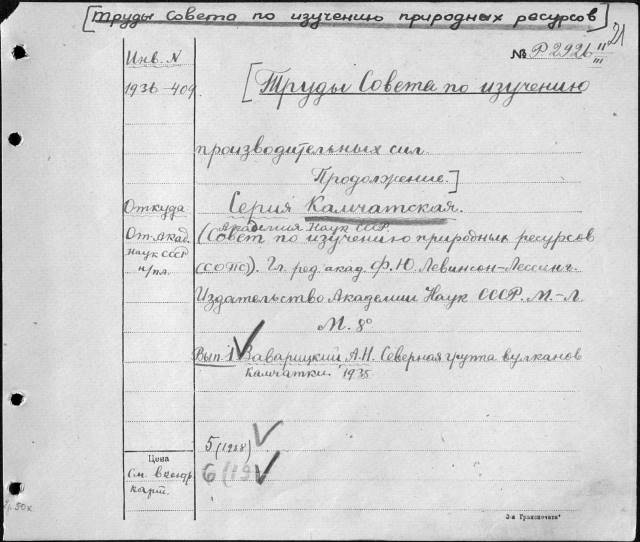 [Труды Совета по изучению природных ресурсов]
21
№ Р2926 II/III
Инв. N
1936-409.
[Труды Совета по изучению
производительных сил.
Продолжение.]
Откуда
Серия Камчатская.
Академия Наук СССР.
От Акад.
Наук СССР
н/пл.
(Совет по изучению природных ресурсов
(СОПС). Гл. ред. акад. Ф.Ю. Левинсон-Лессинг.
Издательство Академии Наук СССР. М.-Л.
М. 8°
Вып. 1 Заварицкий А.Н. Северная группа вулканов
Камчатки. 1935
5 (1938)
Цена
См. в
карт.
6 (19
3-я Гранпечать